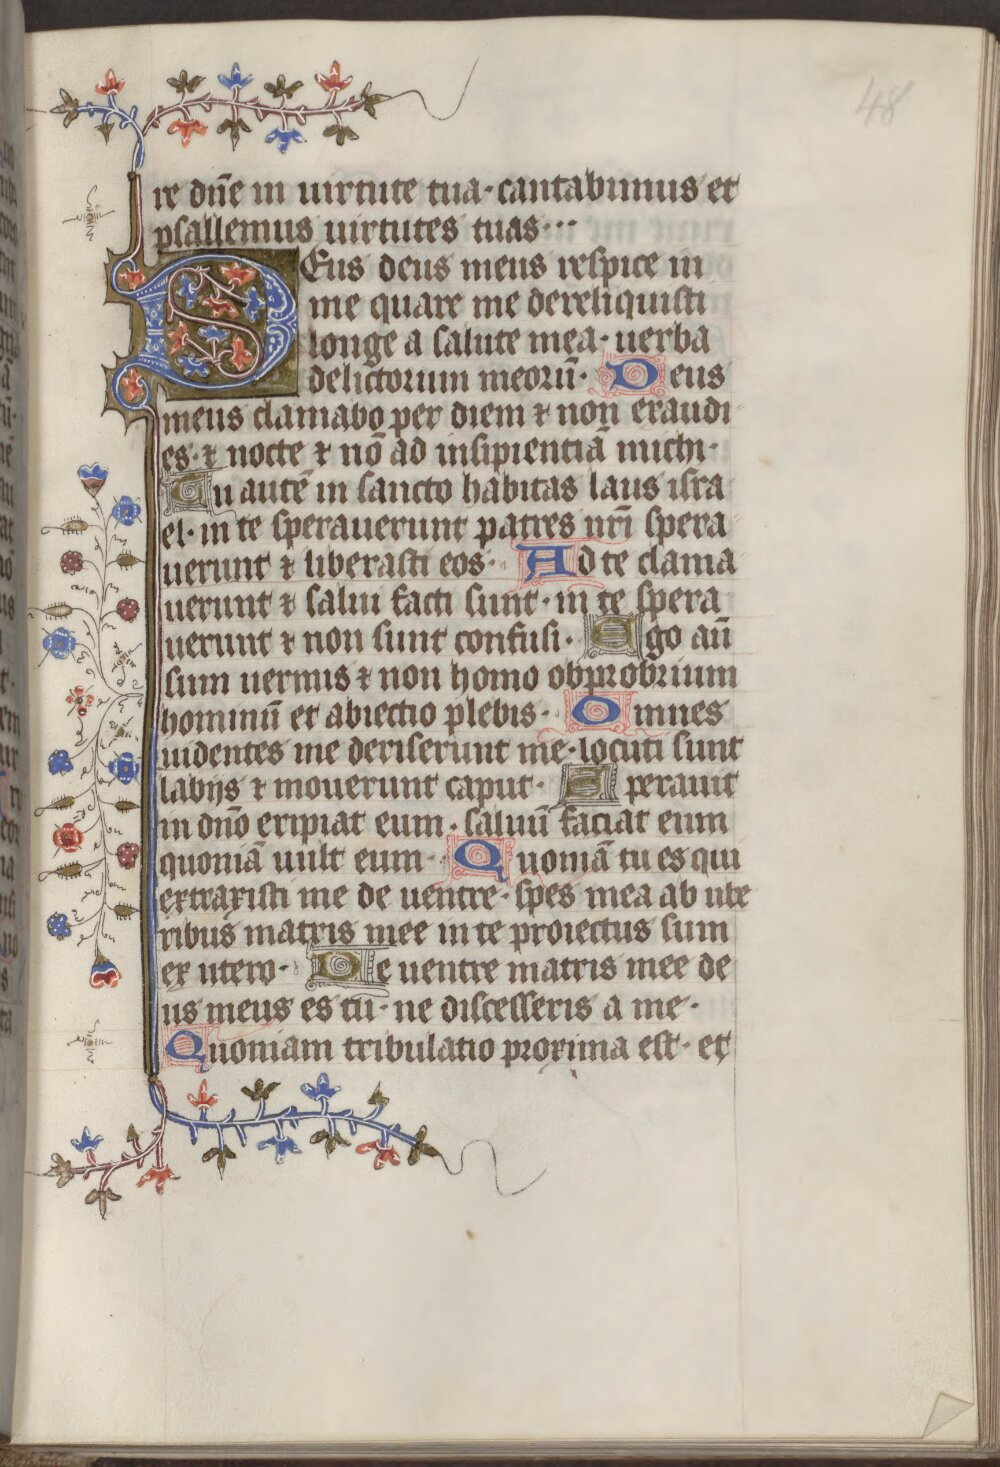 48
re dn̄e in uirtute tua · cantabimus et
psallemus uirtutes tuas ···
Deus deus meus respice in
me quare me dereliquisti
longe a salute mea · uerba
delictorum meorū · Deus
meus clamabo per diem ⁊ non exaudi
es · ⁊ nocte ⁊ nō ad insipientiā michi ·
Tu autē in sancto habitas laus isra
el · in te sperauerunt patres nr̄i spera
uerunt ⁊ liberasti eos · Ad te clama
uerunt ⁊ salui facti sunt · in te spera
uerunt ⁊ non sunt confusi · Ego aū
sum uermis ⁊ non homo obprobrium
hominū et abiectio plebis · Omnes
uidentes me deriserunt me · locuti sunt
labijs ⁊ mouerunt caput · Sperauit
in dn̄o eripiat eum · saluū faciat eum
quoniā uult eum · Quoniā tu es qui
extraxisti me de uentre · spes mea ab ube
ribus matris mee in te proiectus sum
ex utero · De uentre matris mee de
us meus es tu · ne discesseris a me ·
Quoniam tribulatio proxima est · et